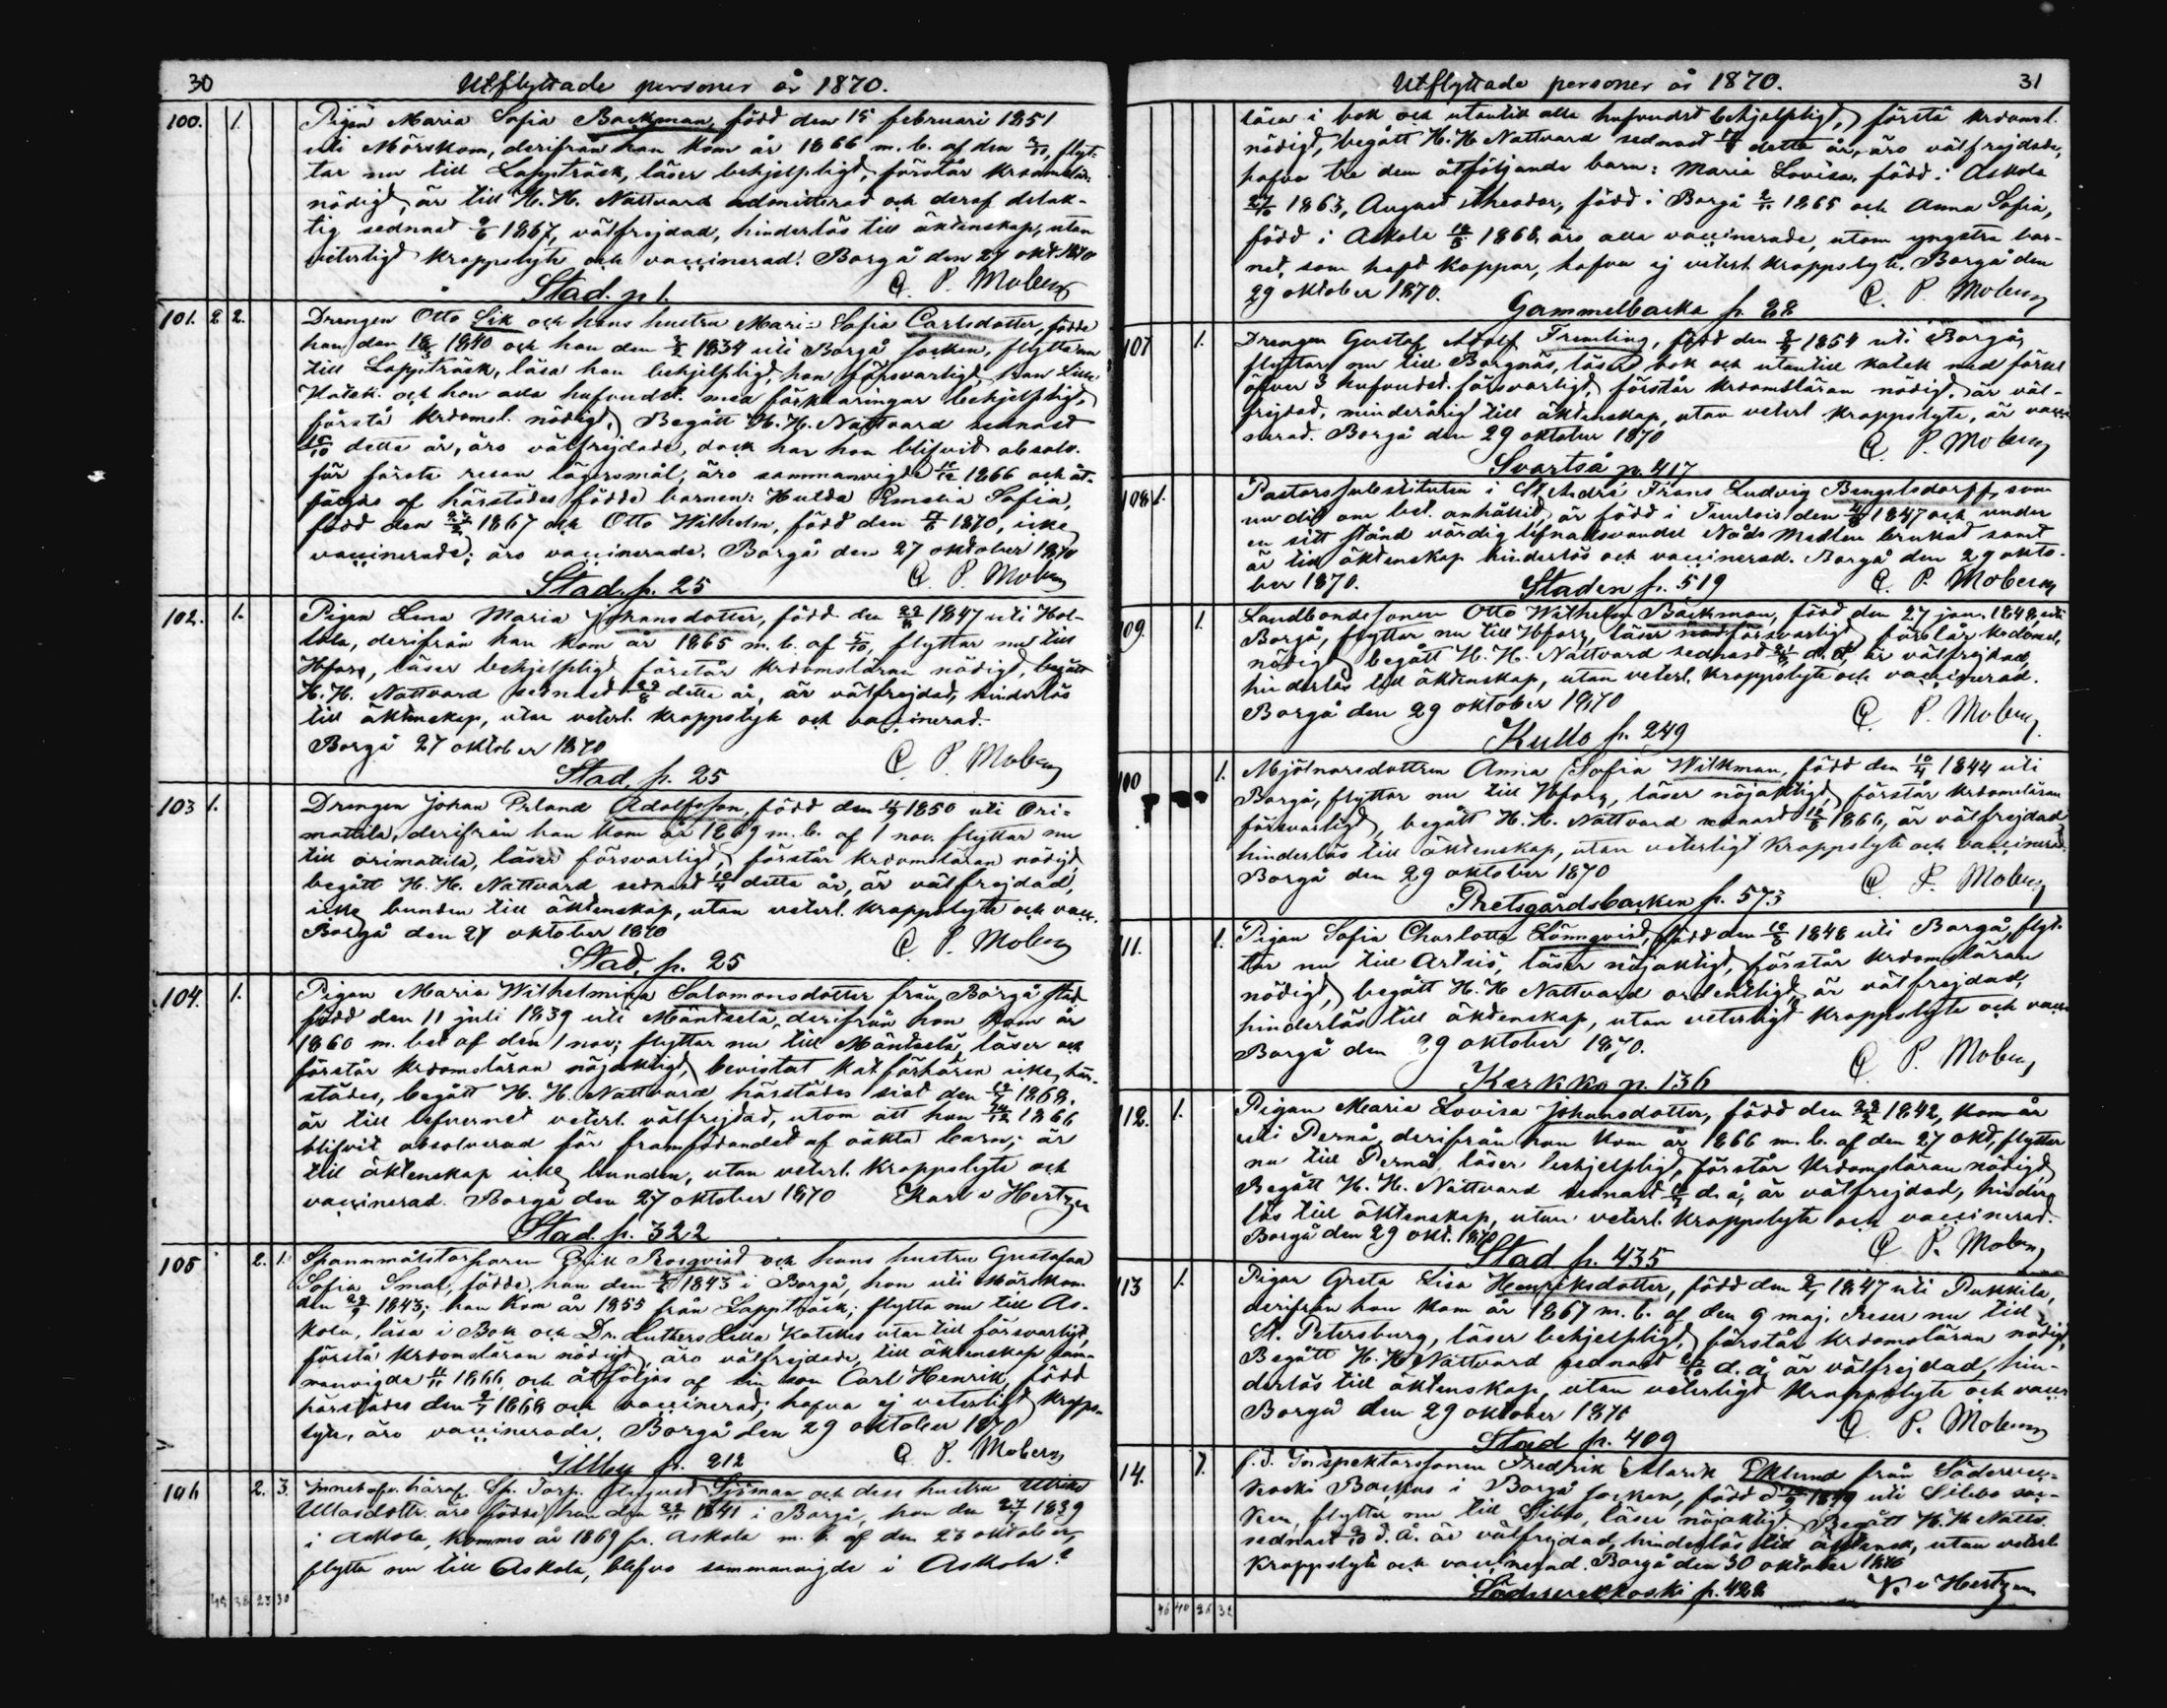 30
Utflyttade personer år 1870.
100. 1. Pigan Maria Sofia Backman, född den 15 februari 1851
uti Mörskom, derifrån hon kom år 1866 m. b. af den flyt-
tar nu till Lappträsk, läser behjelpligt, förstår krdomslär.
nödigt, är till H. H. Nattvard admitterad och deraf delak-
tig sednast 1867, välfrejdad, hinderlös till äktenskap, utan
veterligt kroppslyte och vaccinerad. Borgå den 27 okt. 1870
Stad. p. 1. C. P. Moberg
101. 2 2. Drengen Otto Lik och hans hustru Maria Sofia Carlsdotter, födde
han den 1840 och hon den 1834 uti Borgå socken, flytta nu
till Lappträsk, läsa han behjelpligt, hon försvarligt, han Lilla
Katek. och hon alla hufvudst. med förklaringar behjelpligt,
förstå krdomsl. nödigt, Begått H. H. Nattvard sednast
detta år, äro välfrejdade, dock har hon blifvit absolv.
för första resan lägersmål, äro sammanvigde 1866 och åt-
följas af härstädes födde barnen: Hulda Emelia Sofia,
född den 1867 och Otto Wilhelm, född den 1870, icke
vaccinerade; äro vaccinerade. Borgå den 27 oktober 1870
Stad. p. 25 C. P. Moberg
102. 1. Pigan Lena Maria Johansdotter, född den 1847 uti Hol-
lola, derifrån hon kom år 1865 m. b. af flyttar nu till
läser behjelpligt förstår krdomsläran nödigt, begått
H. H. Nattvard sednast detta år, är välfrejdad, hinderlös
till äktenskap, utan veterl. kroppslyte och vaccinerad.
Borgå 27 oktober 1870 C. P. Moberg
Stad, p. 25
103 1. Drengen Johan Erland Adolfsson, född den 1850 uti Ori-
mattila, derifrån han kom år 1869 m. b. af 1 nov. flyttar nu
till Orimattila, läser försvarligt, förstår krdomsläran nödigt,
begått H. H. Nattvard sednast detta år, är välfrejdad,
icke bunden till äktenskap, utan veterl. kroppslyte och vacc.
Borgå den 27 oktober 1870 C. P. Moberg
Stad, p. 25
104. 1. Pigan Maria Wilhelmina Salomonsdotter från Borgå stad
född den 11 juli 1839 uti Mäntsälä, derifrån hon kom år
1860 m. bet af den 1 nov; flyttar nu till Mäntsälä, läser och
förstår krdomsläran nöjaktigt, bevistat kat. förhören icke här-
städes, begått H. H. Nattvard härstädes sist den 1868,
är till lefvernet veterl. välfrejdad, utom att hon 1866
blifvit absolverad för framfödandet af oäkta barn; är
till äktenskap icke bunden, utan veterl. kroppslyte och
vaccinerad. Borgå den 27 oktober 1870 Karl v Hertzen
Stad. p. 322
105 2. 1. Spannmålstorparen Erik Rosqvist och hans hustru Gustafva
Sofia Smal, födde, han den 1843 i Borgå, hon uti Mörskom
den 1843; hon kom år 1855 från Lappträsk; flytta nu till As-
kola, läsa i Bok och Dr. Luthers Lilla Katekes utan till försvarligt,
förstå krdomsläran nödigt, äro välfrejdade, till äktenskap sam-
manvigda 1866 och åtföljas af sin son Carl Henrik, född
härstädes den 1868 och vaccinerad; hafva ej veterligt kropps-
lyte, äro vaccinerade. Borgå den 29 oktober 1870
Illby p. 212 C. P. Moberg
106 2. 3. Sp. Torp. August Sjöman och dess hustru Ulrika
Ullasdotter äro födde, han den 1841 i Borgå, hon den 1839
i Askola, kommo år 1869 fr. Askola m. b. af den 23 oktober,
flytta nu till Askola, blefvo sammanvigde i Askola?
Utflyttade personer år 1870. 31
läsa i bok och utantill alla hufvudst behjelpligt, förstå krdomsl.
nödigt, begått H. H Nattvard sednast detta år, äro välfrejdade,
hafva tre dem åtföljande barn: Maria Lovisa, född i Askola
1863, August Theodor, född i Borgå 1865 och Anna Sofia,
född i Askola 1868, äro alla vaccinerade, utom yngsta bar-
net, som haft koppor, hafva ej veterl. kroppslyte. Borgå den
29 oktober 1870. C. P. Moberg
Gammelbacka p. 28
107 1. Drengen Gustaf Adolf Fremling, född den 1854 uti Borgå,
flyttar nu till Borgnäs, läser bok och utantill katek med förkl
öfver 3 hufvudst. försvarligt, förstår krdomsläran nödigt, är väl-
frejdad, minderårig till äktenskap, utan veterl kroppslyte, är vacci-
nerad. Borgå den 29 oktober 1870 C. P. Moberg
Svartså p. 417
108 1. Pastorssubstituten i St. André Frans Ludvig Bengelsdorff, som
nu dit om bet. anhållit, är född i Tuulois den 1847 och under
en sitt stånd värdig lefnadsvandel Nåds Medlen brukat samt
är till äktenskap hinderlös och vaccinerad. Borgå den 29 okto-
ber 1870. Staden p. 519 C. P. Moberg
109. 1. Landbondesonen Otto Wilhelm Backman, född den 27 jan. 1848, uti
Borgå, flyttar nu till läser försvarligt, förstår krdomsl.
nödigt, begått H. H. Nattvard sednast d. å, är välfrejdad,
hinderlös till äktenskap, utan veterl. kroppslyte och vaccinerad.
Borgå den 29 oktober 1870 C. P. Moberg
Kullo p. 249
100 1. Mjölnarsdottren Anna Sofia Wilkman, född den 1844 uti
Borgå, flyttar nu till läser nöjaktigt, förstår krdomsläran
försvarligt, begått H. H. Nattvard sednast 1866, är välfrejdad
hinderlös till äktenskap, utan veterligt kroppslyte och vaccinerad.
Borgå den 29 oktober 1870 C. P. Moberg
Prestgårdsbacken p. 573
11. 1. Pigan Sofia Charlotta Lönnqvist, född den 1848 uti Borgå, flyt-
tar nu till Artsiö, läser nöjaktigt, förstår krdomsläran
nödigt, begått H. H Nattvard ordentligt, är välfrejdad,
hinderlös till äktenskap, utan veterligt kroppslyte och vacc
Borgå den 29 oktober 1870. C. P. Moberg
Kerkko p. 136
112. 1. Pigan Maria Lovisa Johansdotter, född den 1842, kom år
uti Pernå, derifrån hon kom år 1866 m. b. af den 27 okt, flyttar
nu till Pernå, läser behjelpligt, förstår krdomsläran nödigt
Begått H. H. Nattvard sednast d. å, är välfrejdad, hinder-
lös till äktenskap, utan veterl. kroppslyte och vaccinerad.
Borgå den 29 okt. 1870 C. P. Moberg
Stad p. 435
113 1. Pigan Greta Lisa Henriksdotter, född den 1847 uti Pukkila,
derifrån hon kom år 1867 m. b. af den 9 maj. Reser nu till
St. Petersburg, läser behjelpligt, förstår krdomsläran nödigt,
Begått H. H Nattvard sednast d. å, är välfrejdad, hin-
derlös till äktenskap, utan veterligt kroppslyte och vacc
Borgå den 29 oktober 1870 C. P. Moberg
Stad p. 409
14. 1. f. d. Inspektorssonen Fredrik Alarik Eklund från Söderveck-
koski Backas i Borgå socken, född d. uti Sibbo soc-
ken, flyttar nu till Sibbo, läser nöjaktigt Begått H. H Nattv.
sednast d. å. är välfrejdad, hinderlös till äktensk, utan veterl
kroppslyte och vaccinerad. Borgå den 30 oktober 1870
Söderveckkoski p. 422 K. v Hertzen